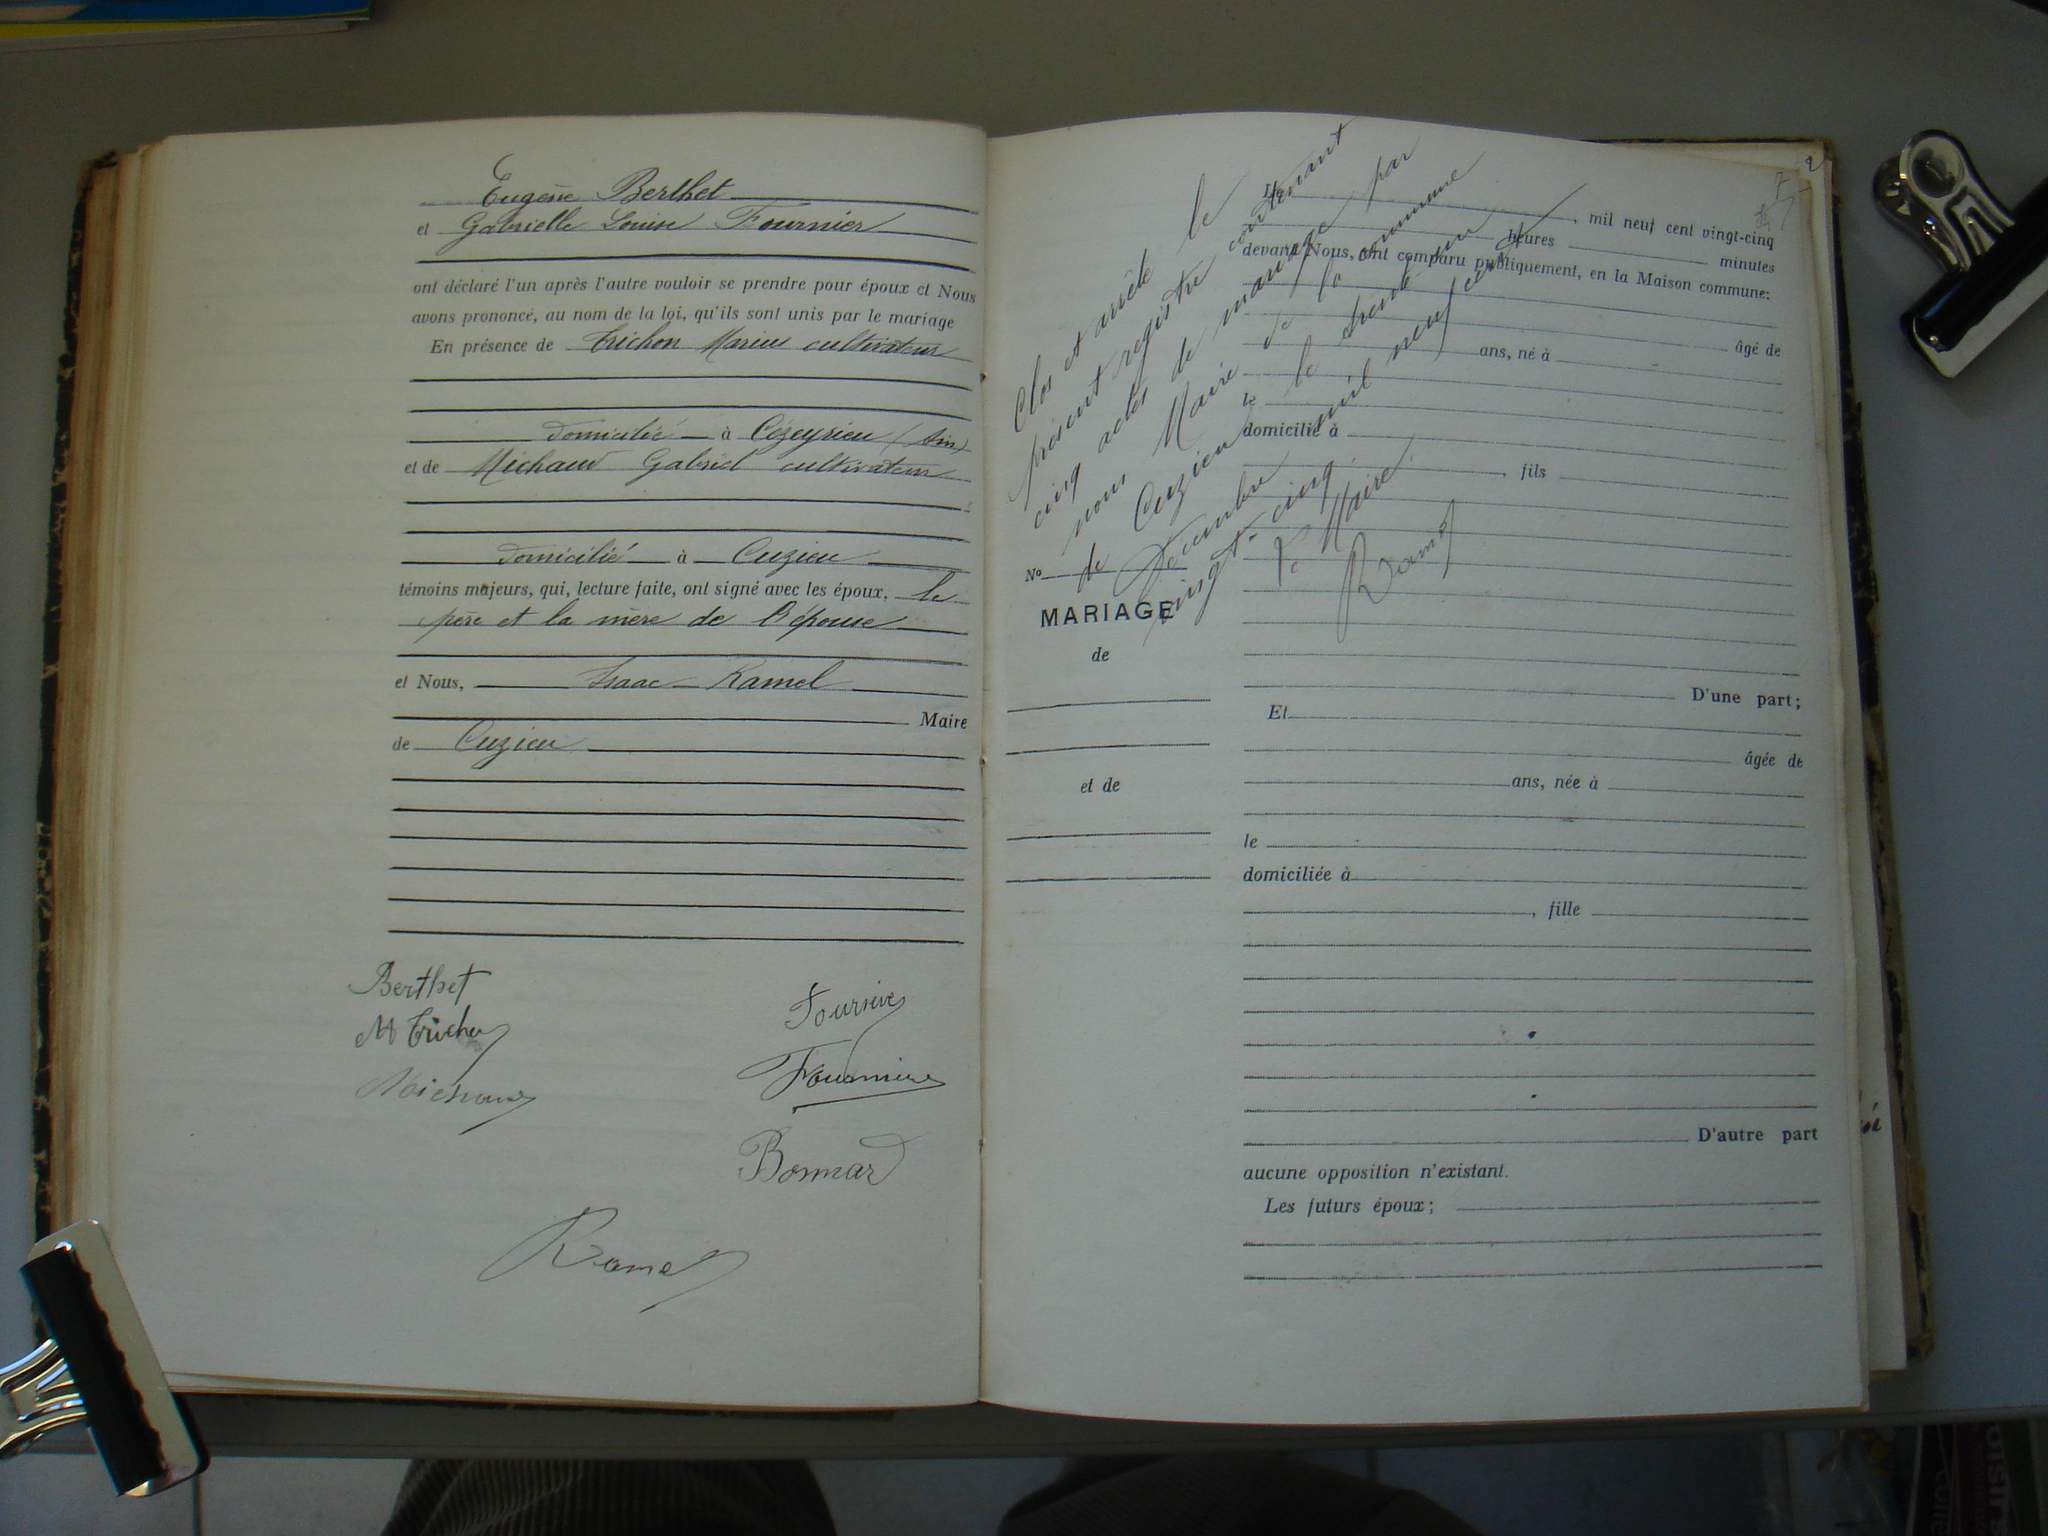 Eugène Berthet
et Gabrielle Louise Fournier
ont déclaré l'un après l'autre vouloir se prendre pour époux et Nous
avons prononcé, au nom de la loi, qu'ils sont unis par le mariage
En présence de Trichon Marius cultivateur
domicilié à Ceyzérieu (Ain)
et de Michaud Gabriel cultivateur
domicilié à Cuzieu
témoins majeurs, qui, lecture faite, ont signé avec les époux, le
père et la mère de l'épouse
et Nous, Isaac Ramel
Maire
de Cuzieu
Berthet
M Trichon
Michaud
Fournier
Fournier
Bonnard
Ramel
Clos et arrêté le
présent registre contenant
cinq actes de mariage par
nous Maire de la commune
de Cuzieu le trente un
Décembre mil neuf cent
vingt-cinq.
Le Maire.
Ramel
Le
, mil neuf cent vingt-cinq
heures minutes
devant Nous, ont comparu publiquement, en la Maison commune:
âgé de
ans, né à
le
domicilié à
, fils
No
MARIAGE
de
et de
D'une part;
Et
âgée de
ans, née à
le
domiciliée à
, fille
D'autre part
aucune opposition n'existant.
Les futurs époux;